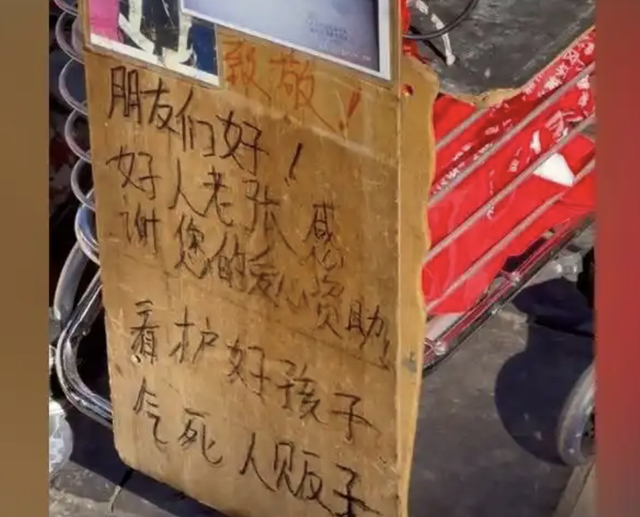 致敬！
朋友们好！
好人老张感
谢您的爱心资助！
看护好孩子
气死人贩子